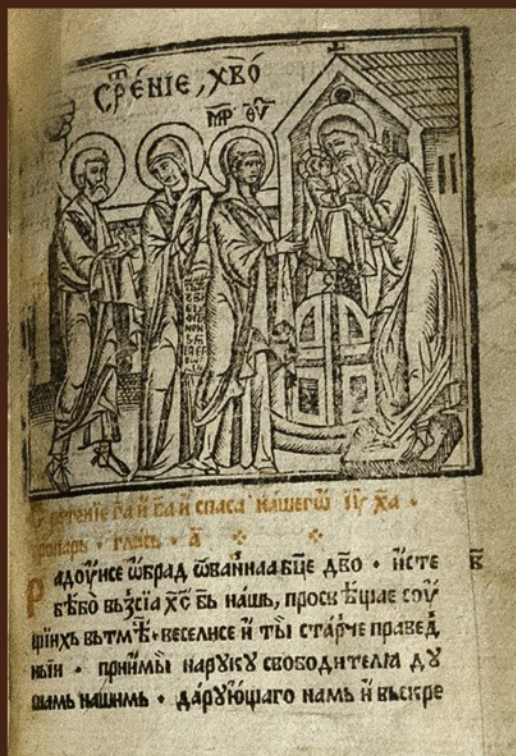 СРЕ́НІЕ, ХВ҃О
МР҃ ѲУ҃
Срѣтенїе га҃ и҆ ба҃ и҆ спаса нашегѡ і҆у҃ ха҃ ·
тропарь · гласъ · а҃
Радоуисе ѡ҆брад ѡ҆ваннаа бц҃е дв҃о · и҆сте б҃
бѣбо възсіа хс҃ бь нашь, просвѣщае соу
щіихь вьтмѣ · веселисе и҆ ты́ ста́рче правед
ныи · прїимы́ нарꙋкꙋ свободителꙗ дꙋ
шамь нашимь · дарꙋющаго намь и҆ вьскре